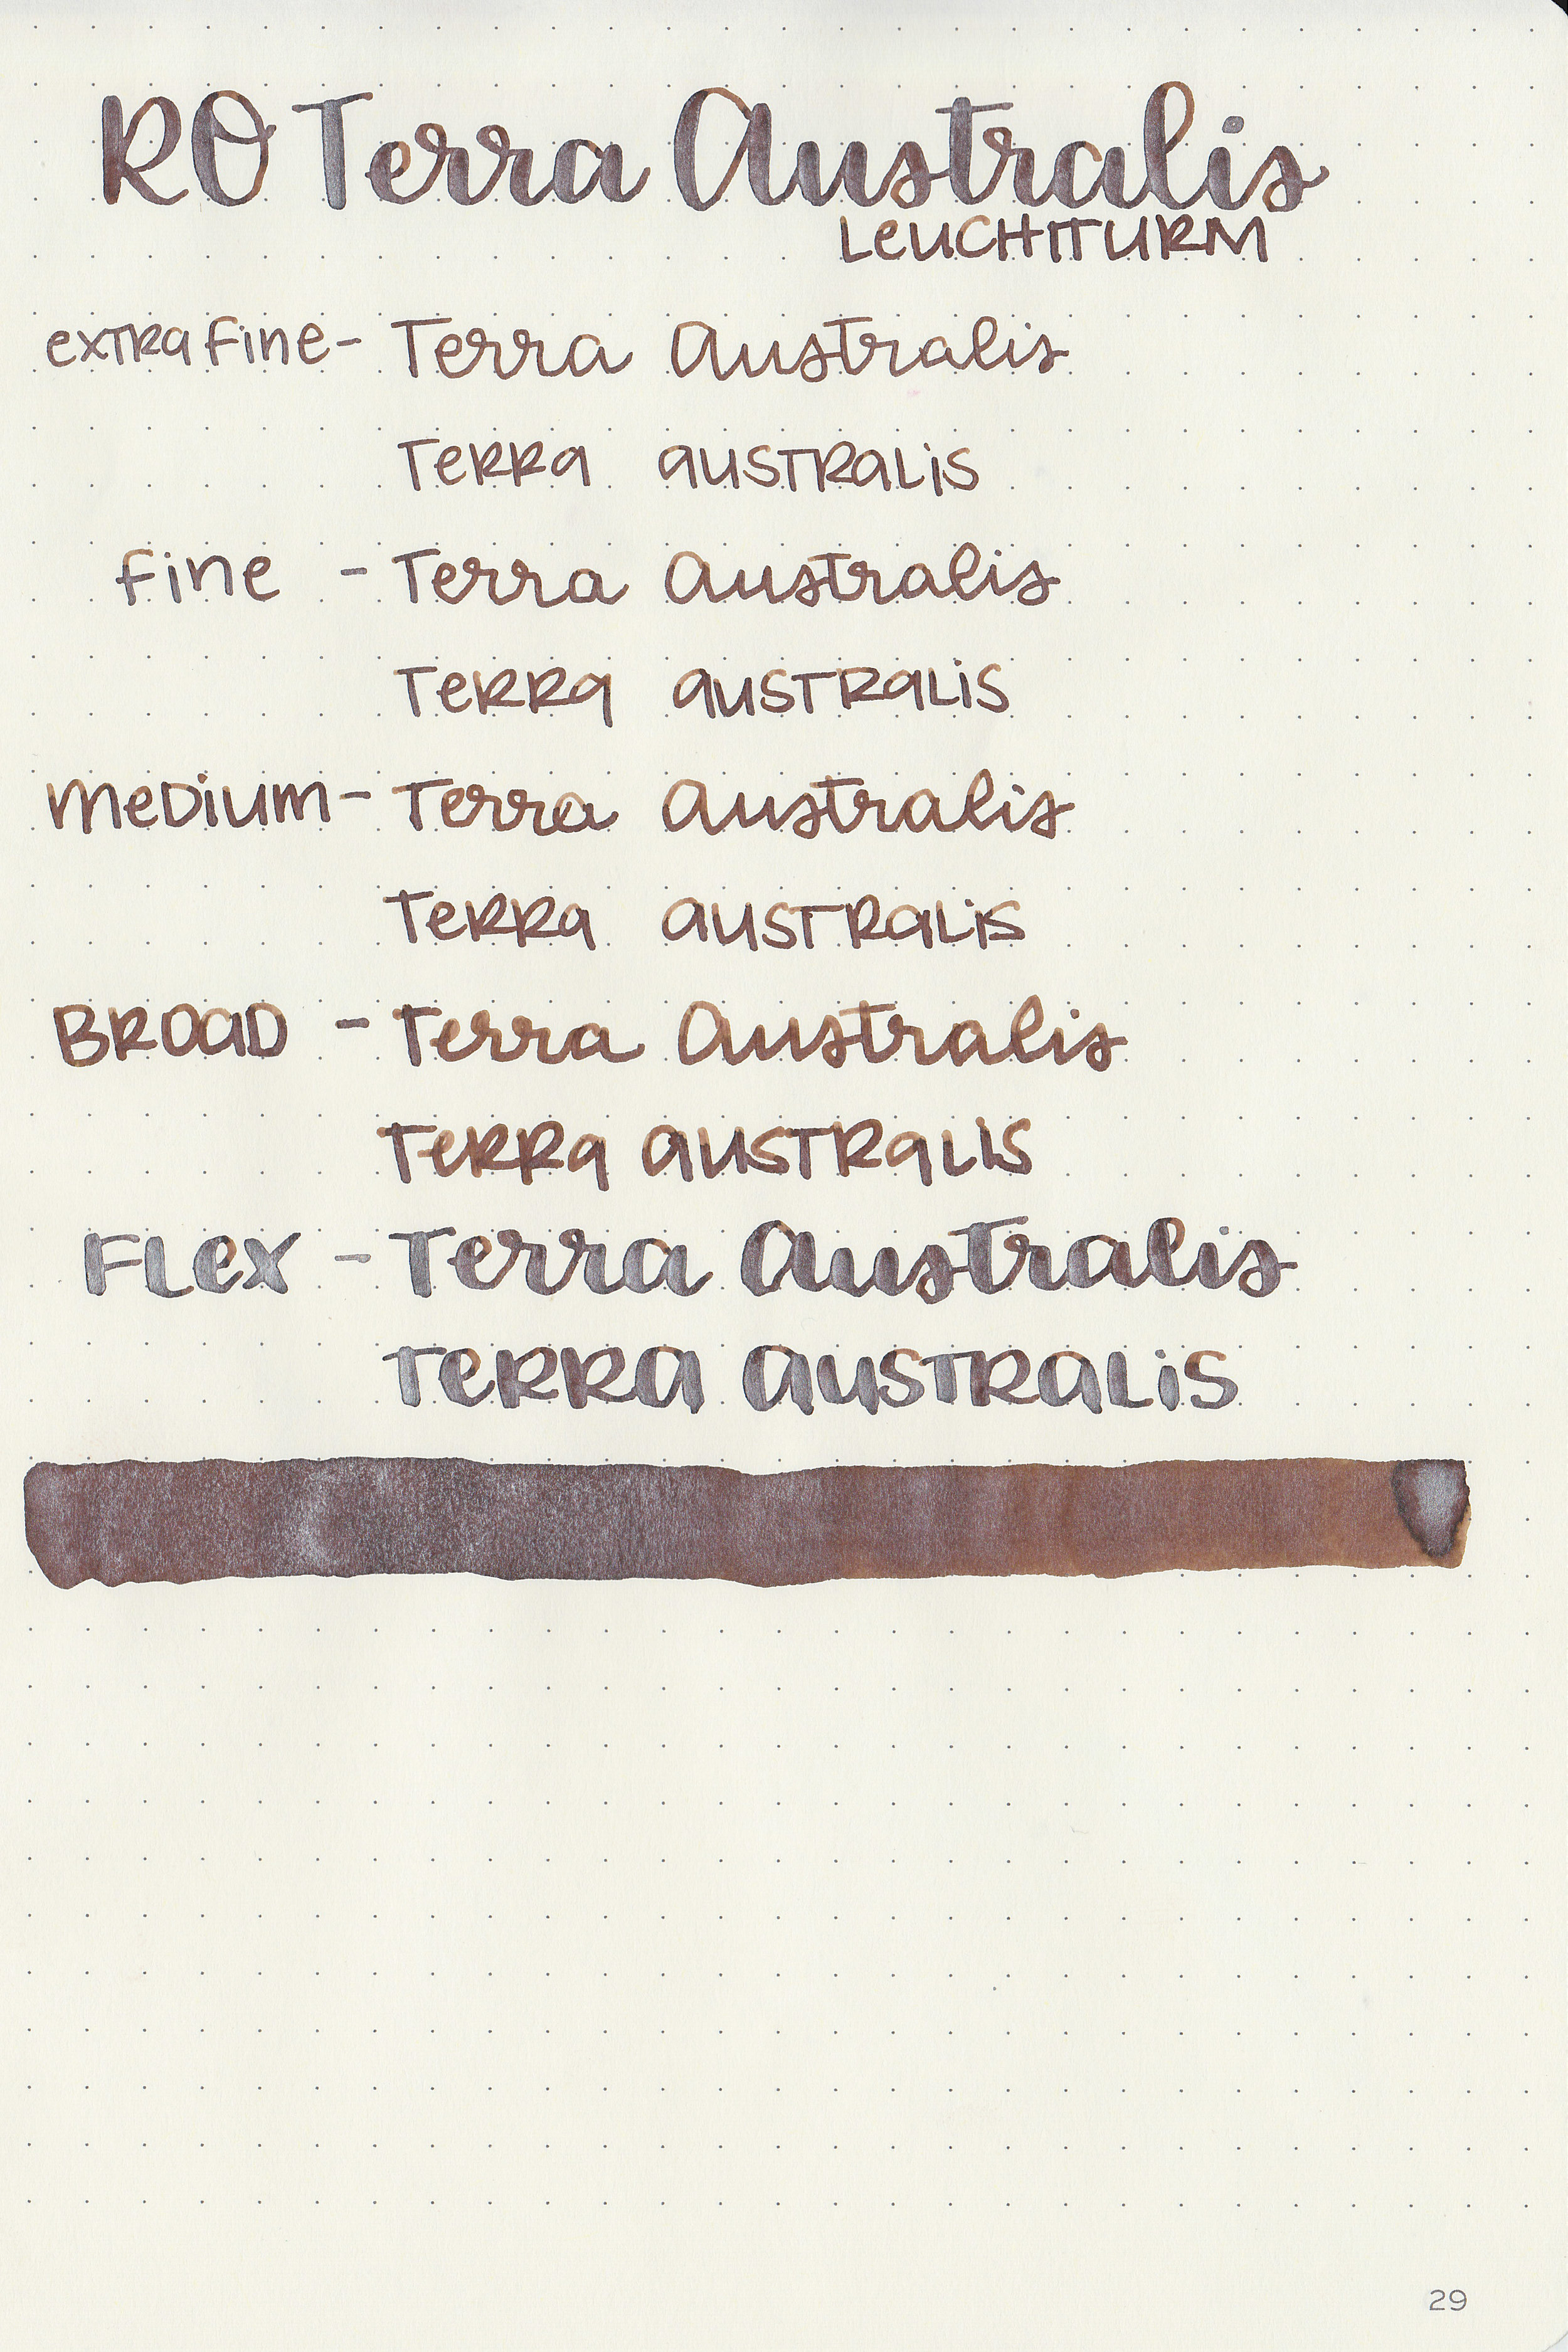 RO Terra Australis
LeUCHTTURM
exTRa Fine - Terra Australis
TeRRa aUSTRaLiS
Fine - Terra Australis
TeRRa aUSTRaLiS
MeDiUM - Terra Australis
TeRRa aUSTRaLiS
BROaD - Terra Australis
TeRRa aUSTRaLiS
FLex - Terra Australis
TeRRa aUSTRaLiS
29